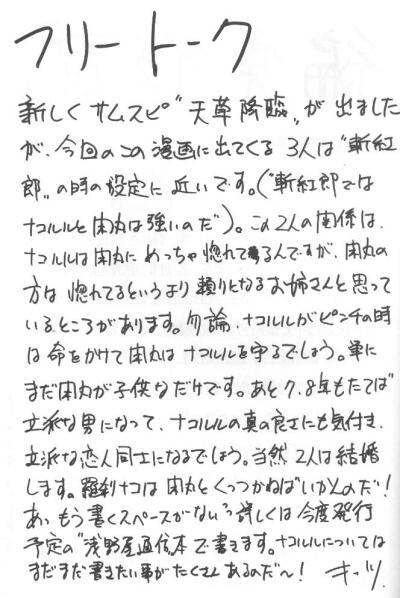 フリートーク
新しくサムスピ"天草降臨"が出ました
が、今回のこの漫画に出てくる3人は"斬紅
郎"の時の設定に近いです。("斬紅郎では
ナコルルと閑丸は強いのだ)。この2人の関係は、
ナコルルは閑丸にめっちゃ惚れてるんですが、閑丸の
方は惚れてるというより頼りとなるお姉さんと思って
いるところがあります。勿論、ナコルルがピンチの時
は命をかけて閑丸はナコルルを守るでしょう。単に
まだ閑丸が子供なだけです。あと7、8年もたてば
立派な男になって、ナコルルの真の良さにも気付き、
立派な恋人同士になるでしょう。当然2人は結婚
します。羅刹ナコは閑丸とくっつかねばいかんのだ!
あ、もう書くスペースがない 詳しくは今度発行
予定の"浅野屋通信"本で書きます。ナコルルについては
まだまだ書きたい事がたくさんあるのだ〜! キッツ